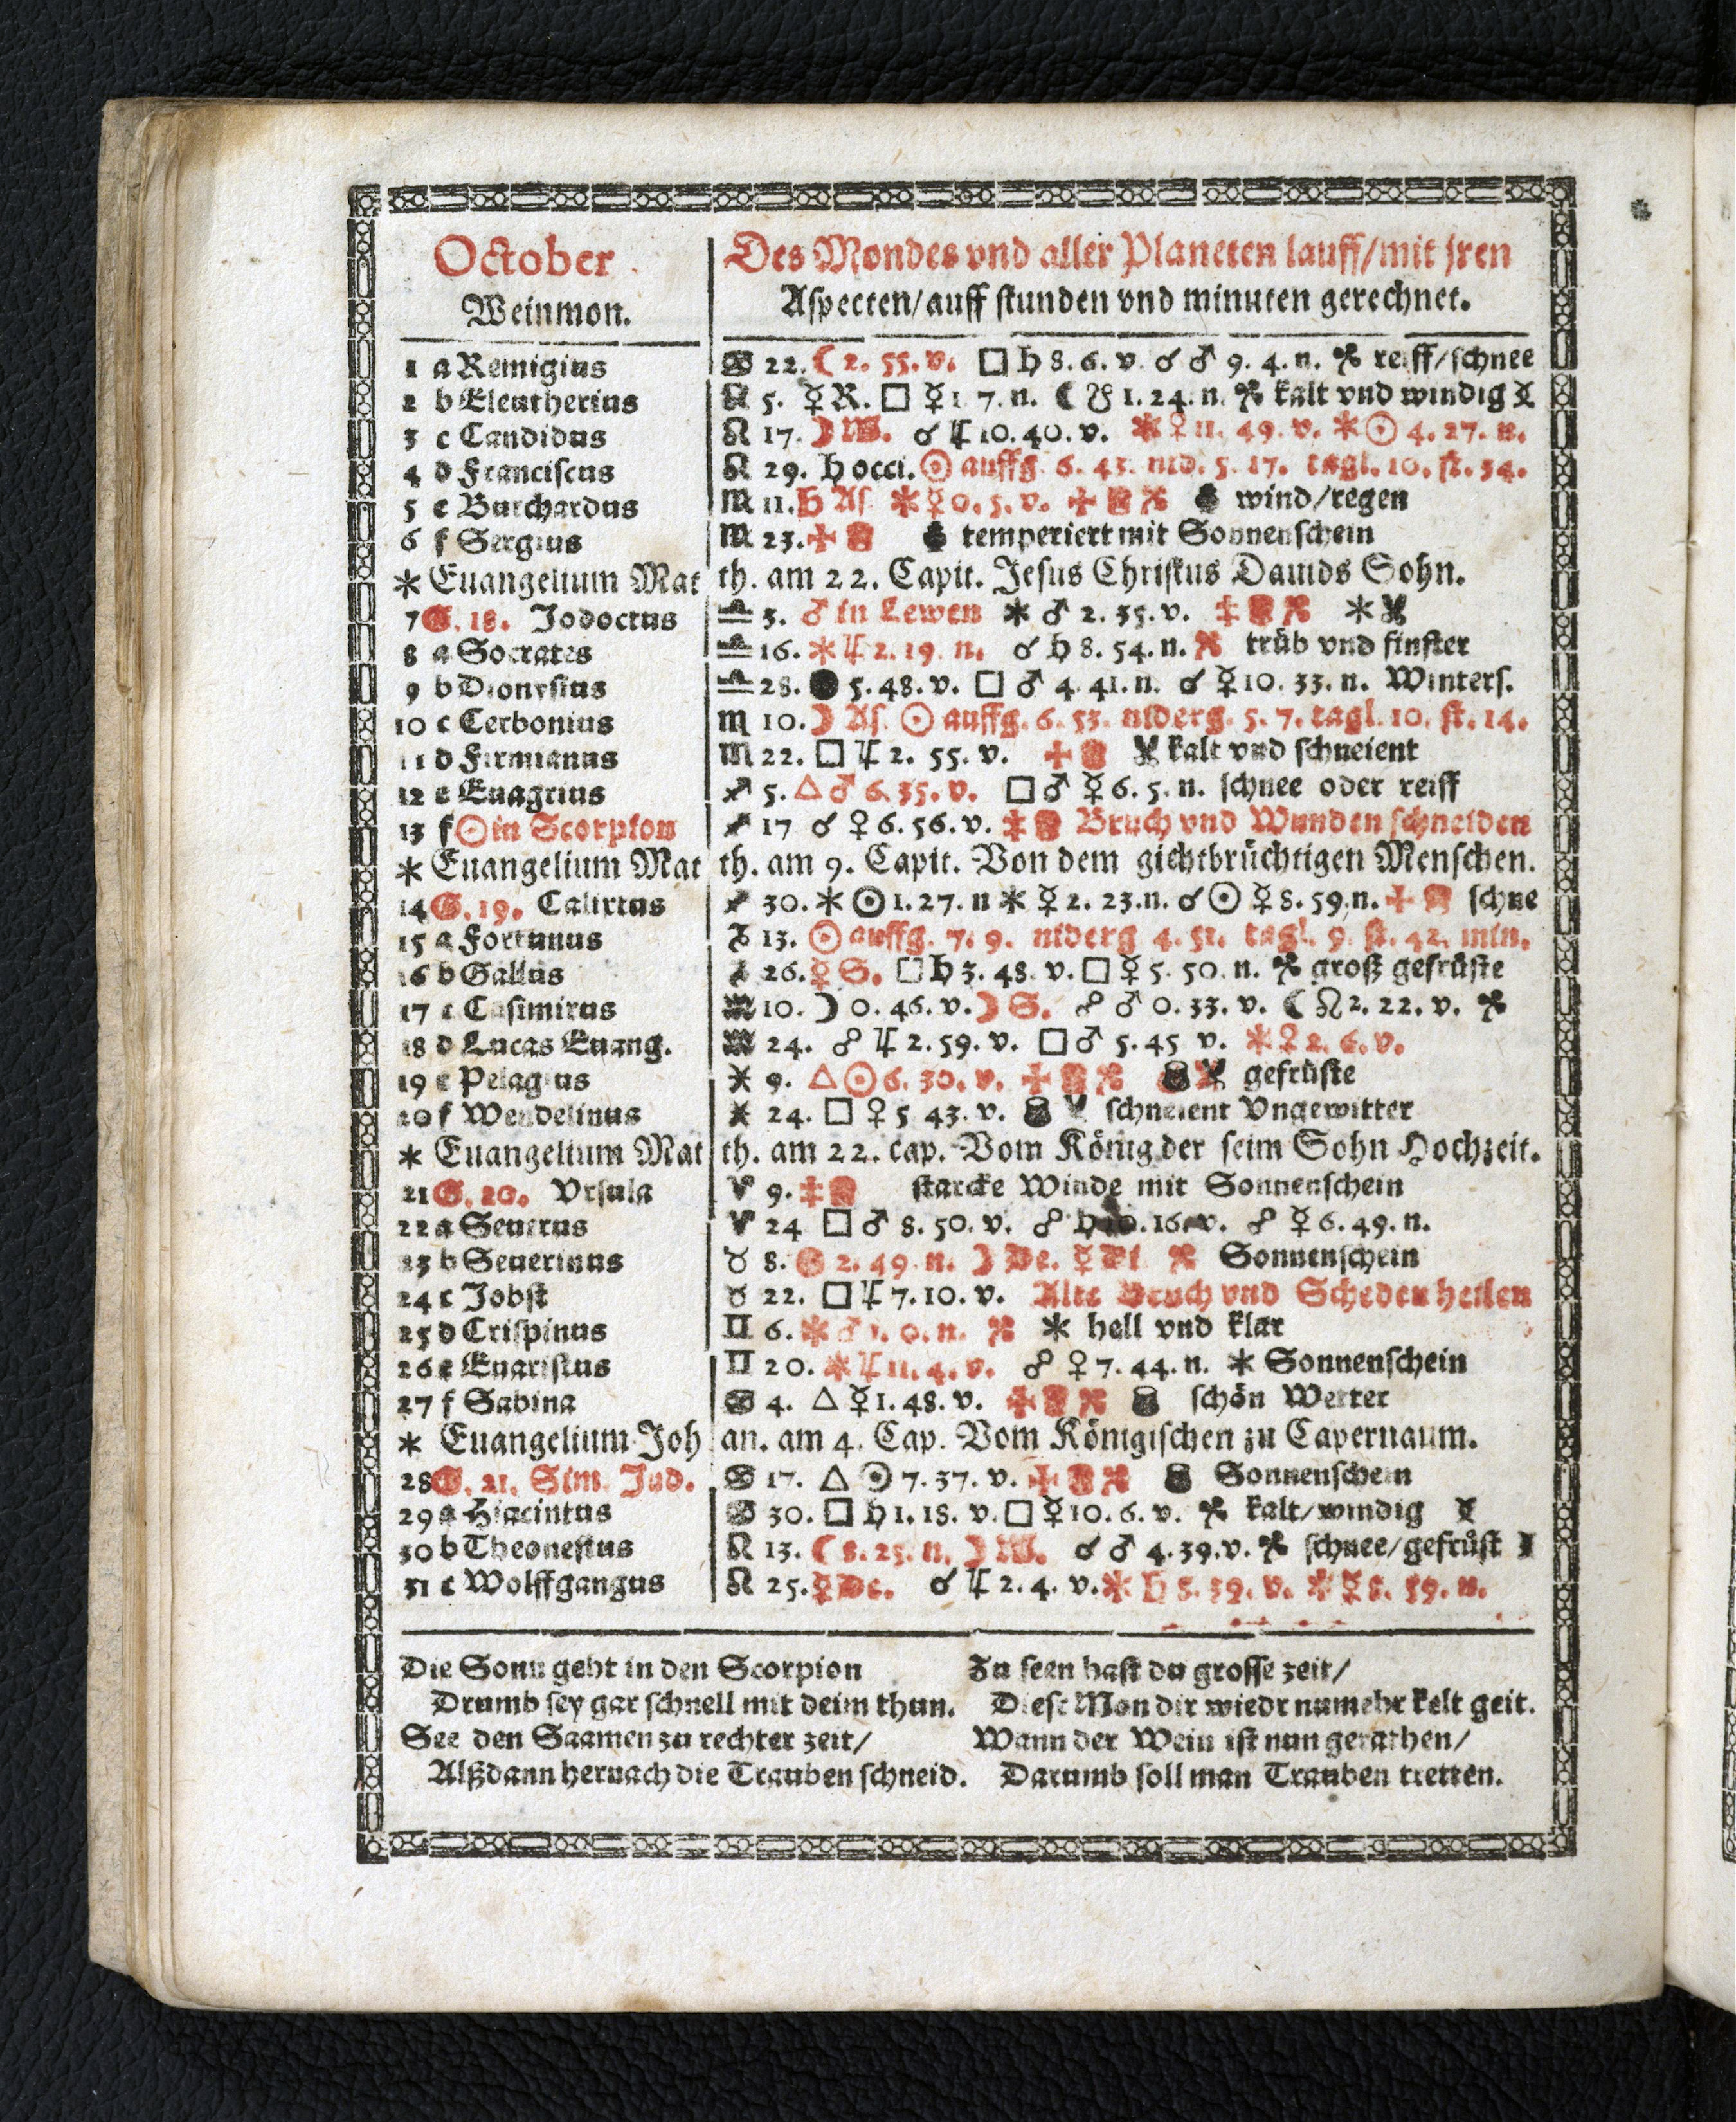 October
Weinmon.
Des Mondes vnd aller Planeten lauff/mit jren
Aspecten/auff stunden vnd minuten gerechnet.
1 a Remigius ♋ 22. ☾ 2. 55. v. □ ♄ 8. 6. v. ☌ ♂ 9. 4. n. reiff/schnee
2 b Eleutherius ♌ 5. ☿ R. □ ☿ 1. 7. n. ☾ ☋ 1. 24. n. kalt vnd windig
3 c Candidus ♌ 17. ☽ W. ☌ ♃ 10. 40. v. ⚹ ♀ 11. 49. v. ⚹ ☉ 4. 27. n.
4 d Franciscus ♌ 29. ♄ occi. ☉ auffg. 6. 43. nid. 5. 17. tagl. 10. st. 34.
5 e Burchardus ♍ 11. ♄ As. ⚹ ☿ 0. 5. v. wind/regen
6 f Sergius ♍ 23. temperiert mit Sonnenschein
⚹ Euangelium Mat th. am 22. Capit. Jesus Christus Dauids Sohn.
7 G. 18. Jodoctus ♎ 3. ♂ in Lewen ⚹ ♂ 2. 35. v.
8 a Socrates ♎ 16. ⚹ ♃ 2. 19. n. ☌ ♄ 8. 54. n. trüb vnd finster
9 b Dionysius ♎ 28. ● 5. 48. v. □ ♂ 4. 41. n. ☌ ☿ 10. 33. n. Winters.
10 c Cerbonius ♏ 10. ☽ As. ☉ auffg. 6. 53. niderg. 5. 7. tagl. 10. st. 14.
11 d Firmianus ♏ 22. □ ♃ 2. 55. v. kalt vnd schneient
12 e Euagrius ♐ 5. △ ♂ 6. 35. v. □ ♂ ☿ 6. 5. n. schnee oder reiff
13 f ☉ in Scorpion ♐ 17 ☌ ♀ 6. 56. v. Bruch vnd Wunden schneiden
⚹ Euangelium Mat th. am 9. Capit. Von dem gichtbrüchtigen Menschen.
14 G. 19. Calixtus ♐ 30. ⚹ ☉ 1. 27. n ⚹ ☿ 2. 23. n. ☌ ☉ ☿ 8. 59. n. schne
15 a Fortunus ♑ 13. ☉ auffg. 7. 9. niderg 4. 51. tagl. 9. st. 42. min.
16 b Gallus ♑ 26. ☿ S. □ ♄ 3. 48. v. □ ☿ 5. 50. n. groß gefrüste
17 c Casimirus ♒ 10. ☽ 0. 46. v. ☽ S. ☍ ♂ 0. 33. v. ☾ ☊ 2. 22. v.
18 d Lucas Euang. ♒ 24. ☍ ♃ 2. 59. v. □ ♂ 5. 45 v. ⚹ ♀ 2. 6. v.
19 e Pelagius ♓ 9. △ ☉ 6. 30. v. gefrüste
20 f Wendelinus ♓ 24. □ ♀ 5 43. v. schneient Vngewitter
⚹ Euangelium Mat th. am 22. cap. Vom König der seim Sohn Hochzeit.
21 G. 20. Vrsula ♈ 9. starcke Winde mit Sonnenschein
22 a Seuerus ♈ 24 □ ♂ 8. 50. v. ☍ ♄ 16. v. ☍ ☿ 6. 49. n.
23 b Seuerinus ♉ 8. 2. 49. n. ☽ De. ☿ Sonnenschein
24 c Jobst ♉ 22. □ ♃ 7. 10. v. Alte Bruch vnd Scheden heilen
25 d Crispinus ♊ 6. ⚹ ♂ 1. 0. n. ⚹ hell vnd klar
26 e Euaristus ♊ 20. ⚹ ♃ 11. 4. v. ☍ ♀ 7. 44. n. ⚹ Sonnenschein
27 f Sabina ♋ 4. △ ☿ 1. 48. v. schön Wetter
⚹ Euangelium Joh an. am 4. Cap. Vom Königischen zu Capernaum.
28 G. 21. Sim. Jud. ♋ 17. △ ☉ 7. 37. v. Sonnenschein
29 a Hiacintus ♋ 30. □ ♄ 1. 18. v. □ ☿ 10. 6. v. kalt/windig
30 b Theonestus ♌ 13. ☾ 8. 25. n. ☽ W. ☌ ♂ 4. 39. v. schnee/gefrüst
31 c Wolffgangus ♌ 25. ☿ De. ☌ ♃ 2. 4. v. ⚹ ♄ 5. 39. v. ⚹ ☿ 59. n.
Die Sonn geht in den Scorpion
Drumb sey gar schnell mit deim thun.
See den Saamen zu rechter zeit/
Alßdann hernach die Trauben schneid.
Zu seen hast du grosse zeit/
Diese Mon dir wiedr numehr kelt geit.
Wann der Wein ist nun gerathen/
Darumb soll man Trauben tretten.